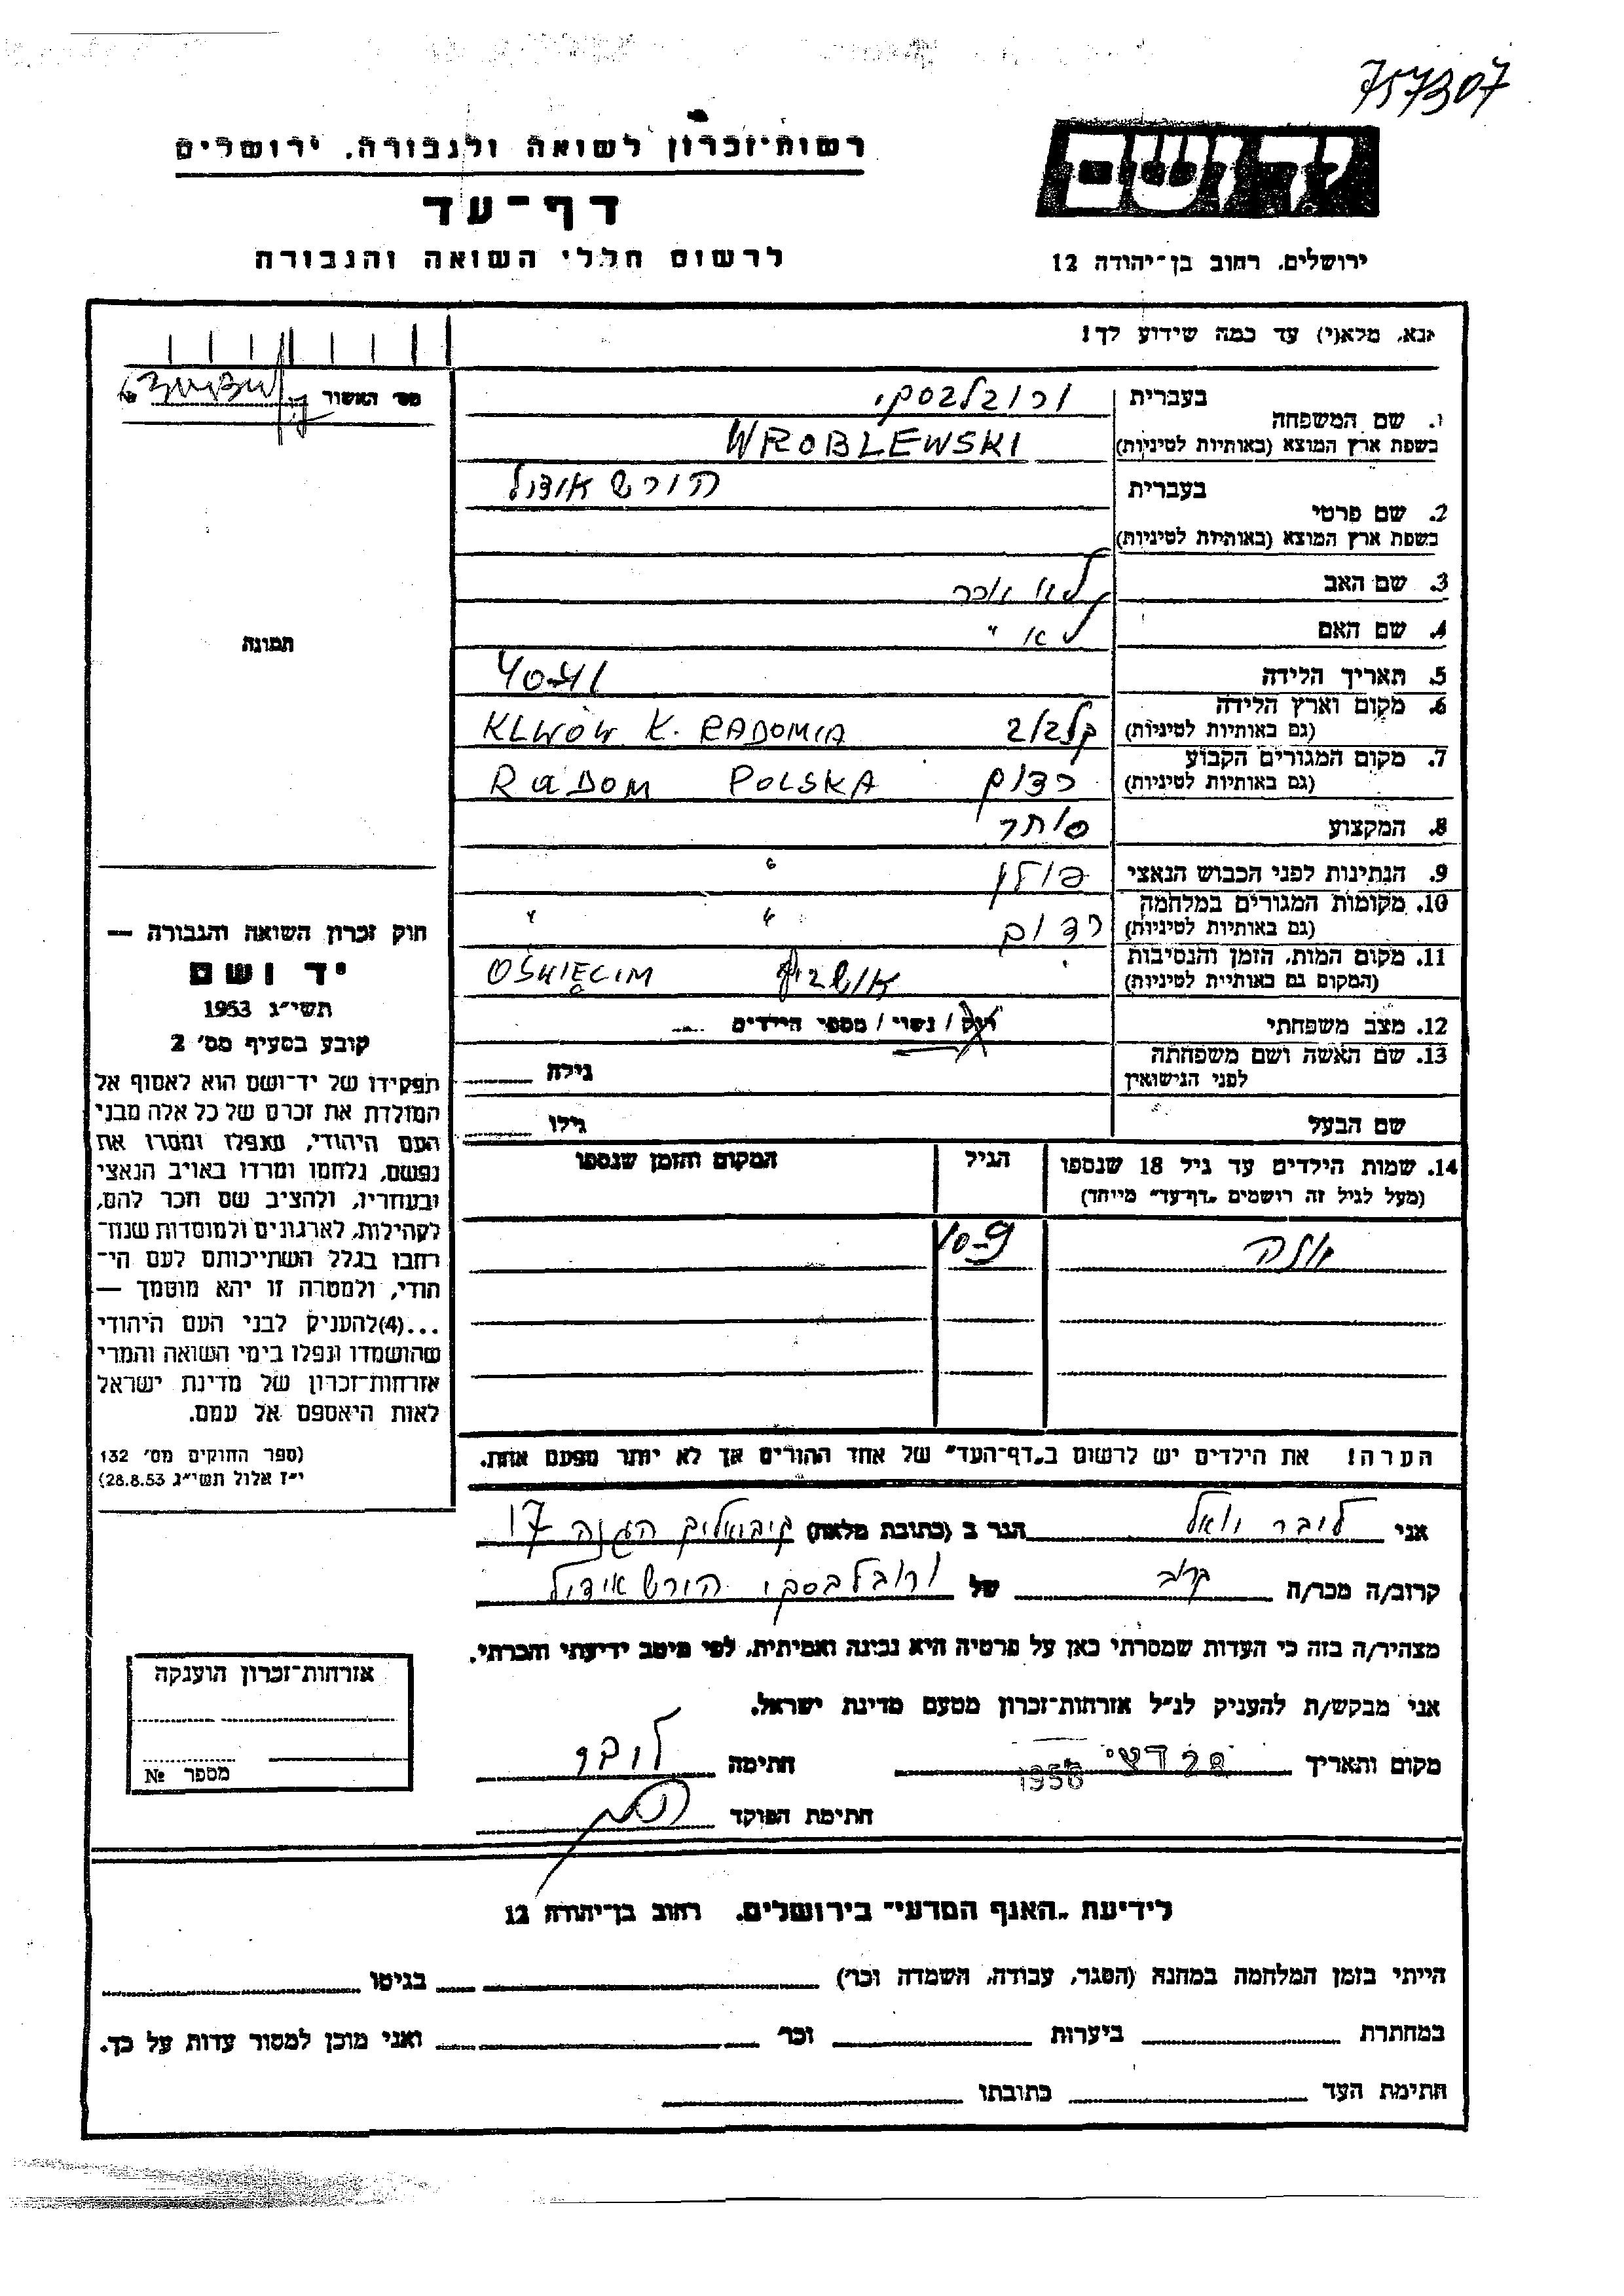 757307
רשות־זכרון לשואה ולגבורה. ירושלים
דף־עד
לרשום חללי השואה והגבורה
יד ושם
ירושלים. רחוב בן־יהודה 12
נא, מלא(י) עד כמה שידוע לך!
מס' האשור №
1. שם המשפחה
בעברית ורובלבסקי
בשפת ארץ המוצא (באותיות לטיניות) WROBLEWSKI
2. שם פרטי
בעברית הורש אידל
בשפת ארץ המוצא (באותיות לטיניות)
3. שם האב לא זוכר
4. שם האם לא "
5. תאריך הלידה 40-41
6. מקום וארץ הלידה
(גם באותיות לטיניות) KLWÓW K. RADOMIA
7. מקום המגורים הקבוע
(גם באותיות לטיניות) רדום RADOM POLSKA
8. המקצוע סוחר
9. הנתינות לפני הכבוש הנאצי פולין "
10. מקומות המגורים במלחמה
(גם באותיות לטיניות) רדום " "
11. מקום המות, הזמן והנסיבות
(המקום גם באותיות לטיניות) אושביץ OŚWIĘCIM
12. מצב משפחתי רוק / נשוי / מספר הילדים
13. שם האשה ושם משפחתה
לפני הנישואין גילה
שם הבעל גילו
14. שמות הילדים עד גיל 18 שנספו הגיל המקום והזמן שנספו
(מעל לגיל זה רושמים „דף־עד” מיוחד)
10-9
הערה! את הילדים יש לרשום ב„דף־העד” של אחד ההורים אך לא יותר מפעם אחת.
תמונה
חוק זכרון השואה והגבורה —
יד ושם
תשי"ג 1953
קובע בסעיף מס' 2
תפקידו של יד־ושם הוא לאסוף אל
המולדת את זכרם של כל אלה מבני
העם היהודי, שנפלו ומסרו את
נפשם, נלחמו ומרדו באויב הנאצי
ובעוזריו, ולהציב שם וזכר להם,
לקהילות, לארגונים ולמוסדות שנח־
רבו בגלל השתייכותם לעם הי־
הודי, ולמטרה זו יהא מוסמך —
...(4)להעניק לבני העם היהודי
שהושמדו ונפלו בימי השואה והמרי
אזרחות־זכרון של מדינת ישראל
לאות היאספם אל עמם.
(ספר החוקים מס' 132
י"ז אלול תשי"ג 28.8.53)
אני ליבר הגר ב (כתובת מלאה) הגנה 17
קרוב/ה מכר/ה קרוב של ורובלבסקי הורש אידל
מצהיר/ה בזה כי העדות שמסרתי כאן על פרטיה היא נכונה ואמיתית, לפי מיטב ידיעתי והכרתי.
אני מבקש/ת להעניק לנ"ל אזרחות־זכרון מטעם מדינת ישראל.
מקום ותאריך 28 דצמ' 1956 חתימה ליבר
חתימת הפוקד
אזרחות־זכרון הוענקה
מספר №
לידיעת „האגף המדעי” בירושלים. רחוב בן־יהודה 12
הייתי בזמן המלחמה במחנה (הסגר, עבודה, השמדה וכו') בגיטו
במחתרת ביערות וכו' ואני מוכן למסור עדות על כך.
חתימת העד כתובתו